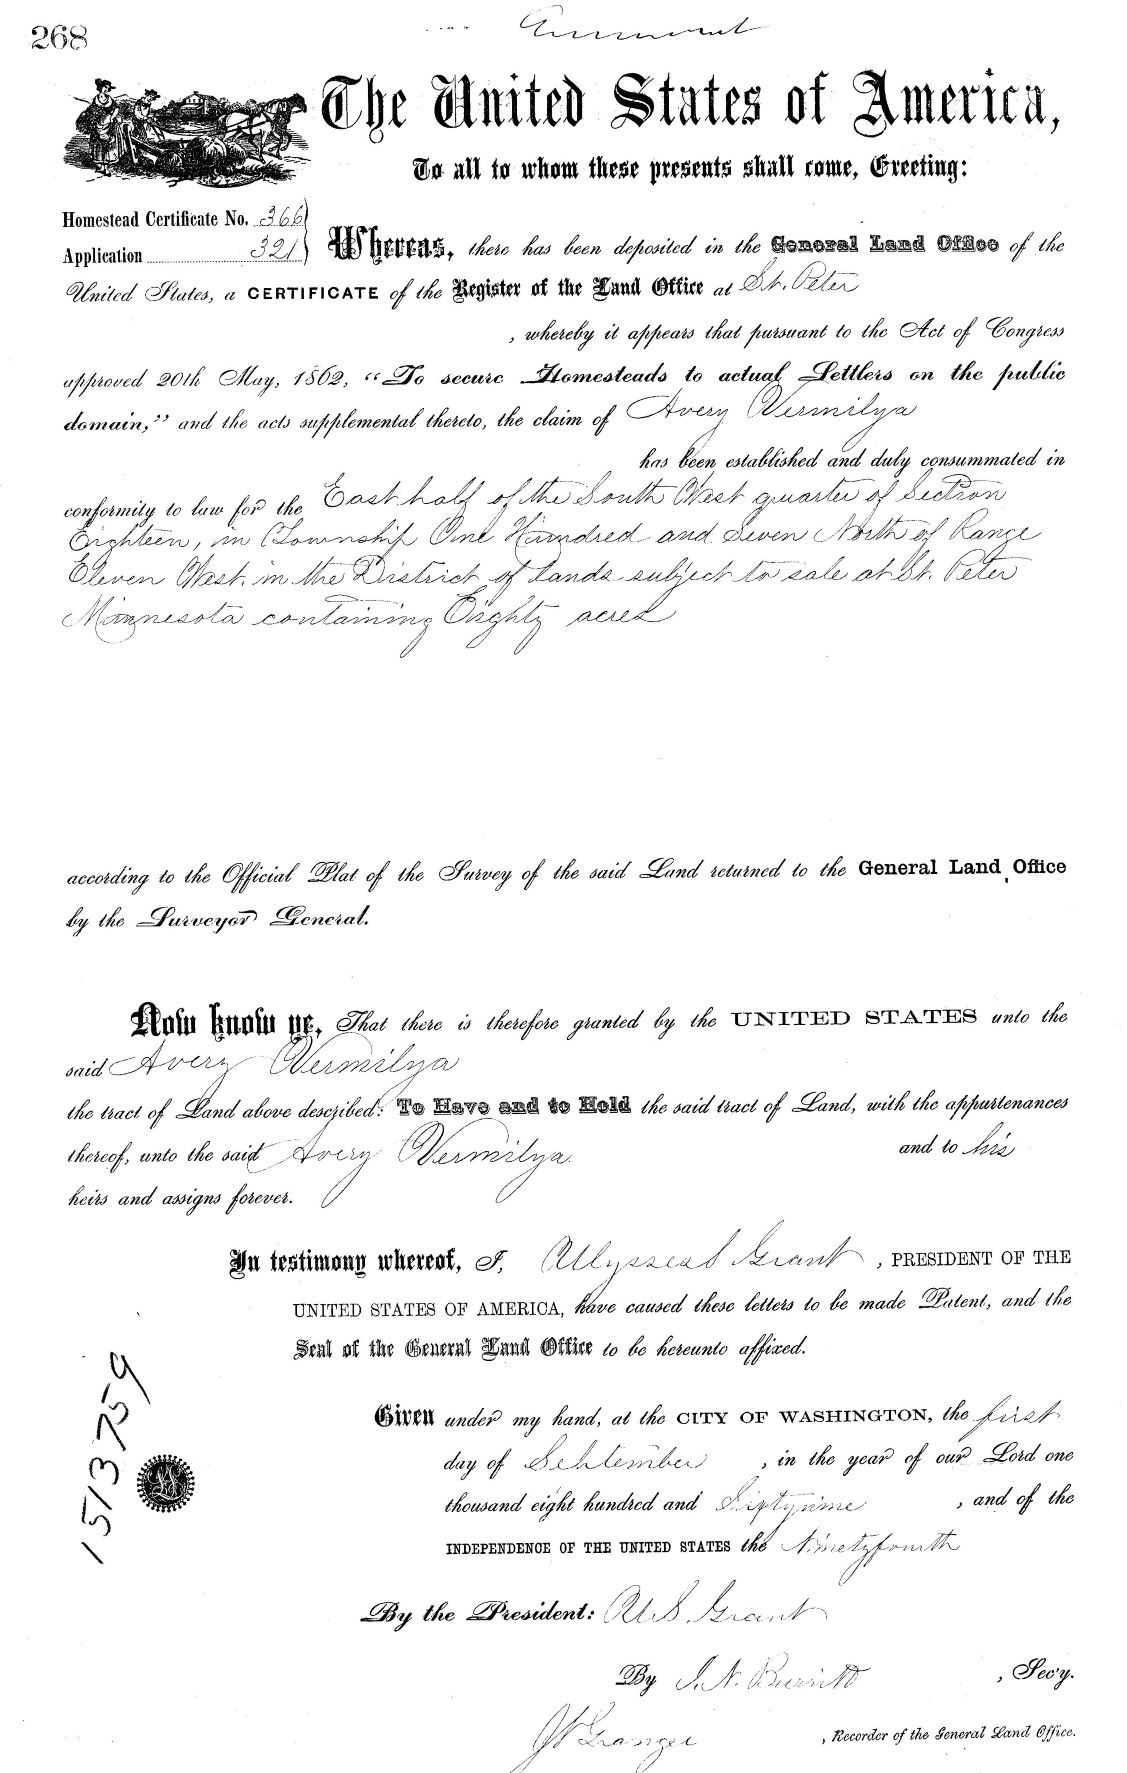 268
The United States of America,
To all to whom these presents shall come, Greeting:
Homestead Certificate No. 366
Application 321
Whereas, there has been deposited in the General Land Office of the
United States, a CERTIFICATE of the Register of the Land Office at St. Peter
, whereby it appears that pursuant to the Act of Congress
approved 20th May, 1862, “To secure Homesteads to actual Settlers on the public
domain,” and the acts supplemental thereto, the claim of Avery Vermilya
has been established and duly consummated in
conformity to law for the East half of the South West quarter of Section
Eighteen, in Township One Hundred and Seven North of Range
Eleven West in the District of Lands subject to sale at St. Peter
Minnesota containing Eighty acres
according to the Official Plat of the Survey of the said Land returned to the General Land Office
by the Surveyor General.
Now know ye, That there is therefore granted by the UNITED STATES unto the
said Avery Vermilya
the tract of Land above described: To Have and to Hold the said tract of Land, with the appurtenances
thereof, unto the said Avery Vermilya and to his
heirs and assigns forever.
In testimony whereof, I, Ulysses S Grant, PRESIDENT OF THE
UNITED STATES OF AMERICA, have caused these letters to be made Patent, and the
Seal of the General Land Office to be hereunto affixed.
Given under my hand, at the CITY OF WASHINGTON, the first
day of September, in the year of our Lord one
thousand eight hundred and Sixtynine, and of the
INDEPENDENCE OF THE UNITED STATES the Ninetyfourth
By the President: U.S. Grant
By Secy.
Granger, Recorder of the General Land Office.
1513759